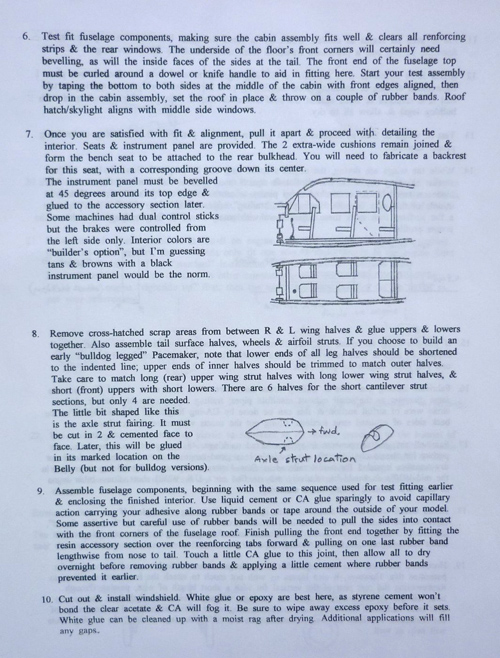 6. Test fit fuselage components, making sure the cabin assembly fits well & clears all reenforcing
strips & the rear windows. The underside of the floor's front corners will certainly need
bevelling, as will the inside faces of the sides at the tail. The front end of the fuselage top
must be curled around a dowel or knife handle to aid in fitting here. Start your test assembly
by taping the bottom to both sides at the middle of the cabin with front edges aligned, then
drop in the cabin assembly, set the roof in place & throw on a couple of rubber bands. Roof
hatch/skylight aligns with middle side windows.
7. Once you are satisfied with fit & alignment, pull it apart & proceed with detailing the
interior. Seats & instrument panel are provided. The 2 extra-wide cushions remain joined &
form the bench seat to be attached to the rear bulkhead. You will need to fabricate a backrest
for this seat, with a corresponding groove down its center.
The instrument panel must be bevelled
at 45 degrees around its top edge &
glued to the accessory section later.
Some machines had dual control sticks
but the brakes were controlled from
the left side only. Interior colors are
"builder's option", but I'm guessing
tans & browns with a black
instrument panel would be the norm.
8. Remove cross-hatched scrap areas from between R & L wing halves & glue uppers & lowers
together. Also assemble tail surface halves, wheels & airfoil struts. If you choose to build an
early "bulldog legged" Pacemaker, note that lower ends of all leg halves should be shortened
to the indented line; upper ends of inner halves should be trimmed to match outer halves.
Take care to match long (rear) upper wing strut halves with long lower wing strut halves, &
short (front) uppers with short lowers. There are 6 halves for the short cantilever strut
sections, but only 4 are needed.
The little bit shaped like this
is the axle strut fairing. It must
be cut in 2 & cemented face to
face. Later, this will be glued
in its marked location on the
Belly (but not for bulldog versions).
fwd.
Axle strut location
9. Assemble fuselage components, beginning with the same sequence used for test fitting earlier
& enclosing the finished interior. Use liquid cement or CA glue sparingly to avoid capillary
action carrying your adhesive along rubber bands or tape around the outside of your model.
Some assertive but careful use of rubber bands will be needed to pull the sides into contact
with the front corners of the fuselage roof. Finish pulling the front end together by fitting the
resin accessory section over the reenforcing tabs forward & pulling on one last rubber band
lengthwise from nose to tail. Touch a little CA glue to this joint, then allow all to dry
overnight before removing rubber bands & applying a little cement where rubber bands
prevented it earlier.
10. Cut out & install windshield. White glue or epoxy are best here, as styrene cement won't
bond the clear acetate & CA will fog it. Be sure to wipe away excess epoxy before it sets.
White glue can be cleaned up with a moist rag after drying. Additional applications will fill
any gaps.